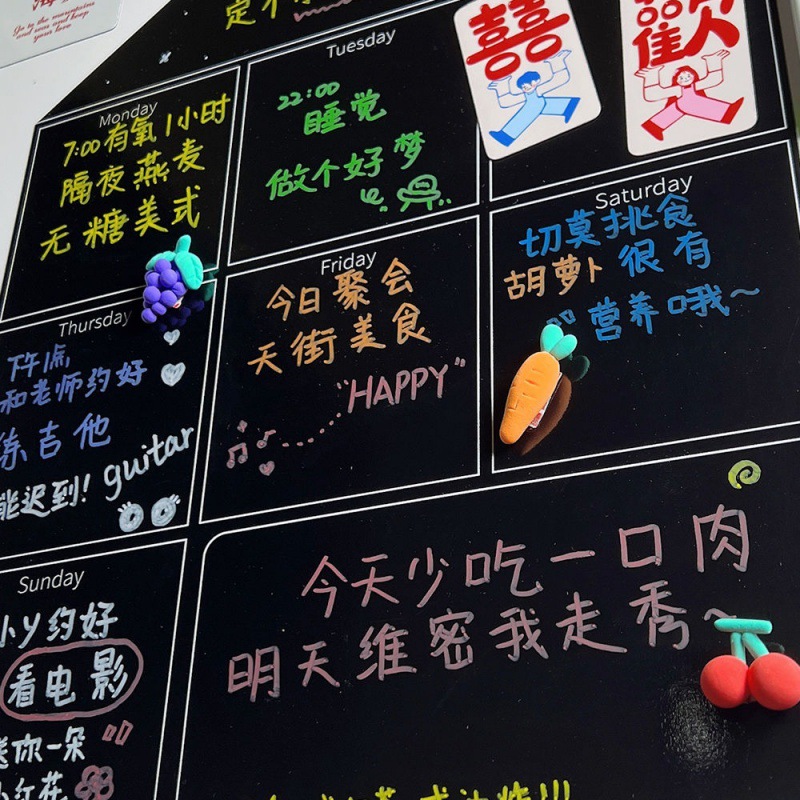 Go to the mountains
and seas and keep
your love
Monday
7:00有氧1小时
隔夜燕麦
无糖美式
Tuesday
22:00
睡觉
做个好梦
囍
Thursday
下午1点
和老师约好
练吉他
能迟到! guitar
Friday
今日聚会
天街美食
"HAPPY"
Saturday
切莫挑食
胡萝卜 很有
营养哦~
Sunday
小y约好
看电影
送你一朵
小红花
今天少吃一口肉
明天维密我走秀~